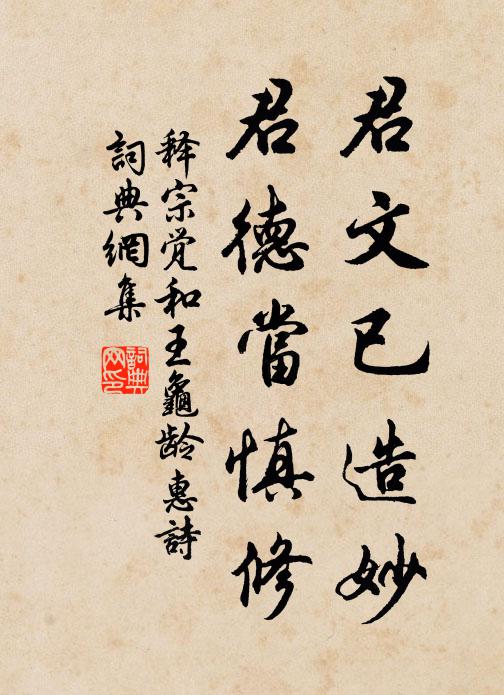 君文已造妙
君德當慎修
释宗覚和王龜龄惠詩
詞典網集
詞典网印